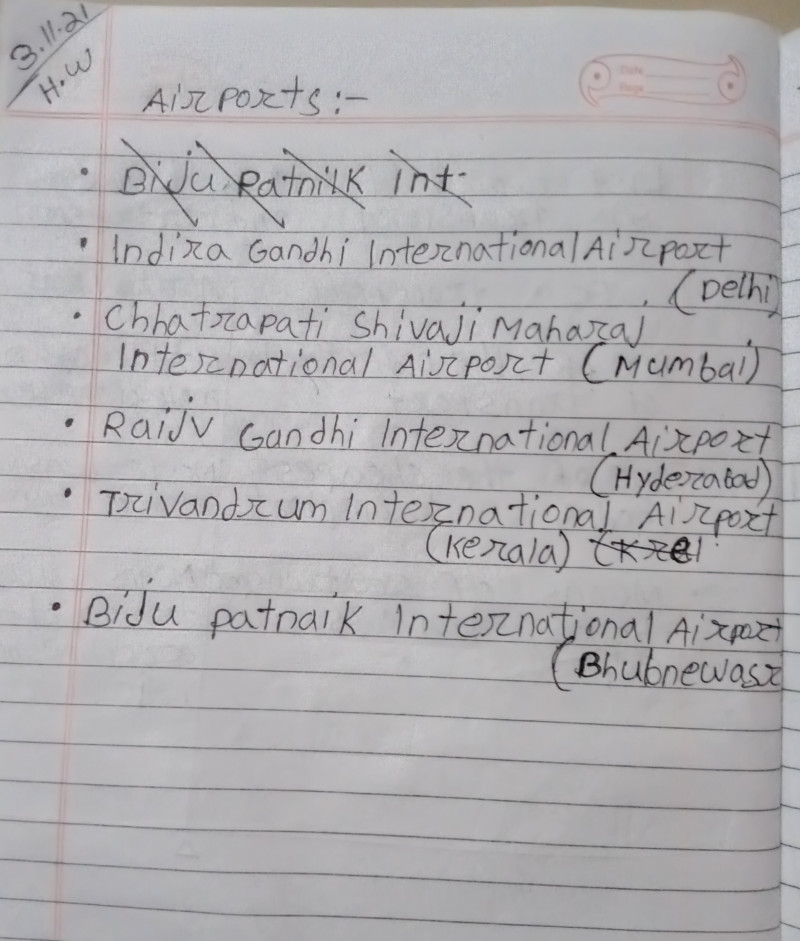 3.11.21
H.W
Date
Page
Airports:-
• Biju Patnilk Int-
• Indira Gandhi International Airport
(Delhi)
• Chhatrapati Shivaji Maharaj
International Airport (Mumbai)
• Raijv Gandhi International Airport
(Hyderabad)
• Trivandrum International Airport
(Kerala) (Kre
• Biju patnaik International Airport
(Bhubnewasr